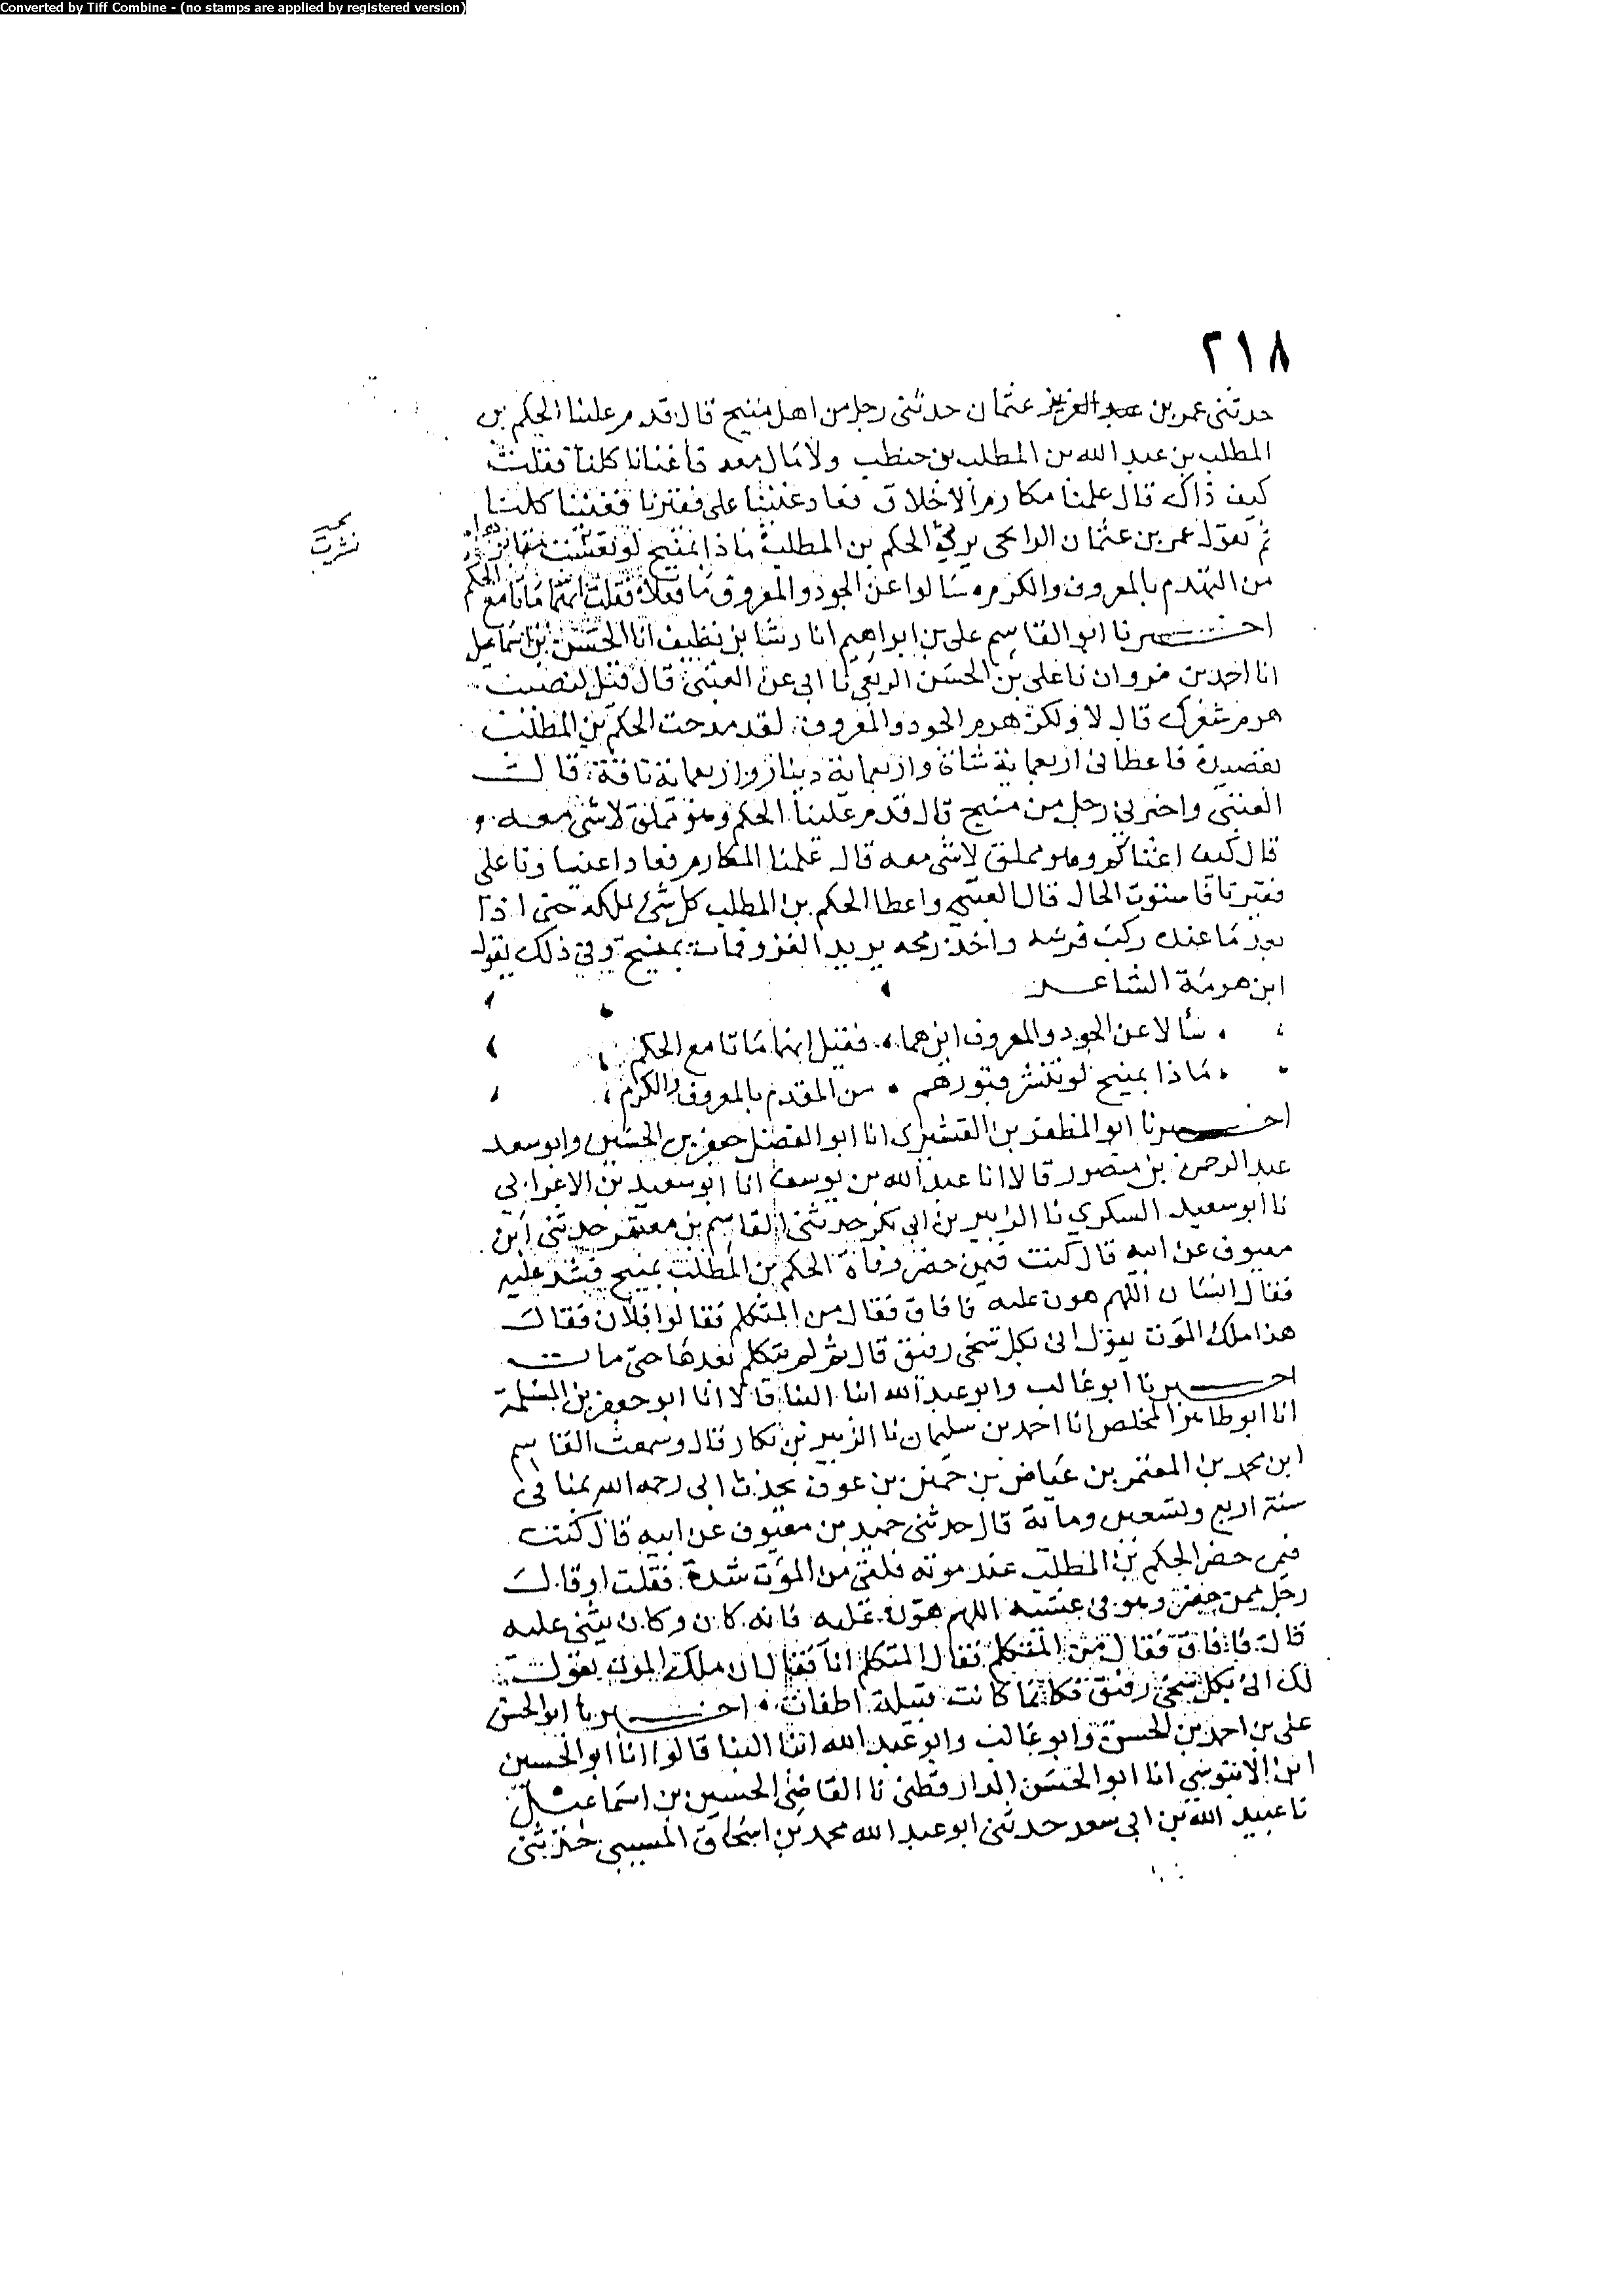 Converted by Tiff Combine - (no stamps are applied by registered version)
٢١٨
حدثنى عمر بن عبد العزيز عثمان حدثنى رجل من اهل منبج قال قدم علينا الحكم بن
المطلب بن عبد الله بن المطلب بن حنطب ولا مال معه فاغنانا كلنا فقلت
كيف ذاك قال علمنا مكارم الاخلاق فعاد غنينا على فقيرنا فغنينا كلنا
ثم يقول عمر بن عثمان الرابحى يرثي الحكم بن المطلب ماذا بمنبج لو
من التهدم بالمعروف والكرم سالوا عن الجود والمعروف ما فعلا فقلت انهما ماتا مع الحكم
نشرت
اخبرنا ابو القاسم على بن ابراهيم انا رشا بن نظيف انا الحسن بن اسماعيل
انا احمد بن مروان نا على بن الحسن الربعي نا ابى عن العتبى قال قيل لنصيب
هرم شعرك قال لا ولكن هرم الجود والمعروف لقد مدحت الحكم بن المطلب
بقصيدة فاعطانى اربعماية شاة واربعماية دينار واربعماية ناقة قالت
العتبى واخبرنى رجل من منبج قال قدم علينا الحكم وهو مملق لا شى معه
قال كيف اغناكم وهو مملق لاشى معه قال علمنا المكارم فعاد اغنياونا على
فقيرنا فاستوت الحال قال العتبي واعطا الحكم بن المطلب كل شئ يملكه حتى اذا
نفد ما عنده ركب فرسه واخذ رمحه يريد الغزو فمات بمنبج وفي ذلك يقول
ابن هرمة الشاعر
سألا عن الجود والمعروف اين هما فقيل انهما ماتا مع الحكم
ماذا بمنبج لو تنشر قبورهم من المقدم بالمعروف والكرم
اخبرنا ابو المظفر بن القشيرى انا ابو الفضل جعفر بن الحسين وابو سعد
عبد الرحمن بن منصور قالا انا عبد الله بن يوسف انا ابو سعيد بن الاعرابي
نا ابو سعيد السكري نا الزبير بن ابى بكر حدثنى القاسم بن معتمر حدثنى ابن
معيوف عن ابيه قال كنت فيمن حضر وفاة الحكم بن المطلب بمنبج فشد عليه
فقال انسان اللهم هون عليه فافاق فقال من المتكلم فقالوا فلان فقال
هذا ملك الموت يقول انى بكل سخى رفيق قال ثم لم يتكلم بعدها حتى مات
اخبرنا ابو غالب وابو عبد الله ابنا البنا قالا انا ابو جعفر بن المسلمة
انا ابو طاهر المخلص انا احمد بن سليمان نا الزبير بن بكار قال وسمعت القاسم
ابن محمد بن المعتمر بن عياض بن حمنن بن عوف يحدث ابى رحمه الله بمنا فى
سنة اربع وتسعين وماية قال حدثنى حميد بن معيوف عن ابيه قال كنت
فيمن حضر الحكم بن المطلب عند موته فلقى من الموت شدة فقلت او قال
رجل ممن حضر وهو فى غشيه اللهم هون عليه فانه كان وكان يثنى عليه
قال فافاق فقال من المتكلم فقال المتكلم انا فقال ان ملك الموت يقول
لك انى بكل سخى رفيق فكانما كانت فتيلة اطفات اخبرنا ابو الحسن
على بن احمد بن الحسن وابو غالب وابو عبد الله ابنا البنا قالوا انا ابو الحسين
ابن الابنوسي انا ابو الحسن الدارقطنى نا القاضى الحسين بن اسماعيل
نا عبيد الله بن ابى سعد حدثنى ابو عبد الله محمد بن اسحاق المسيبى حدثنى